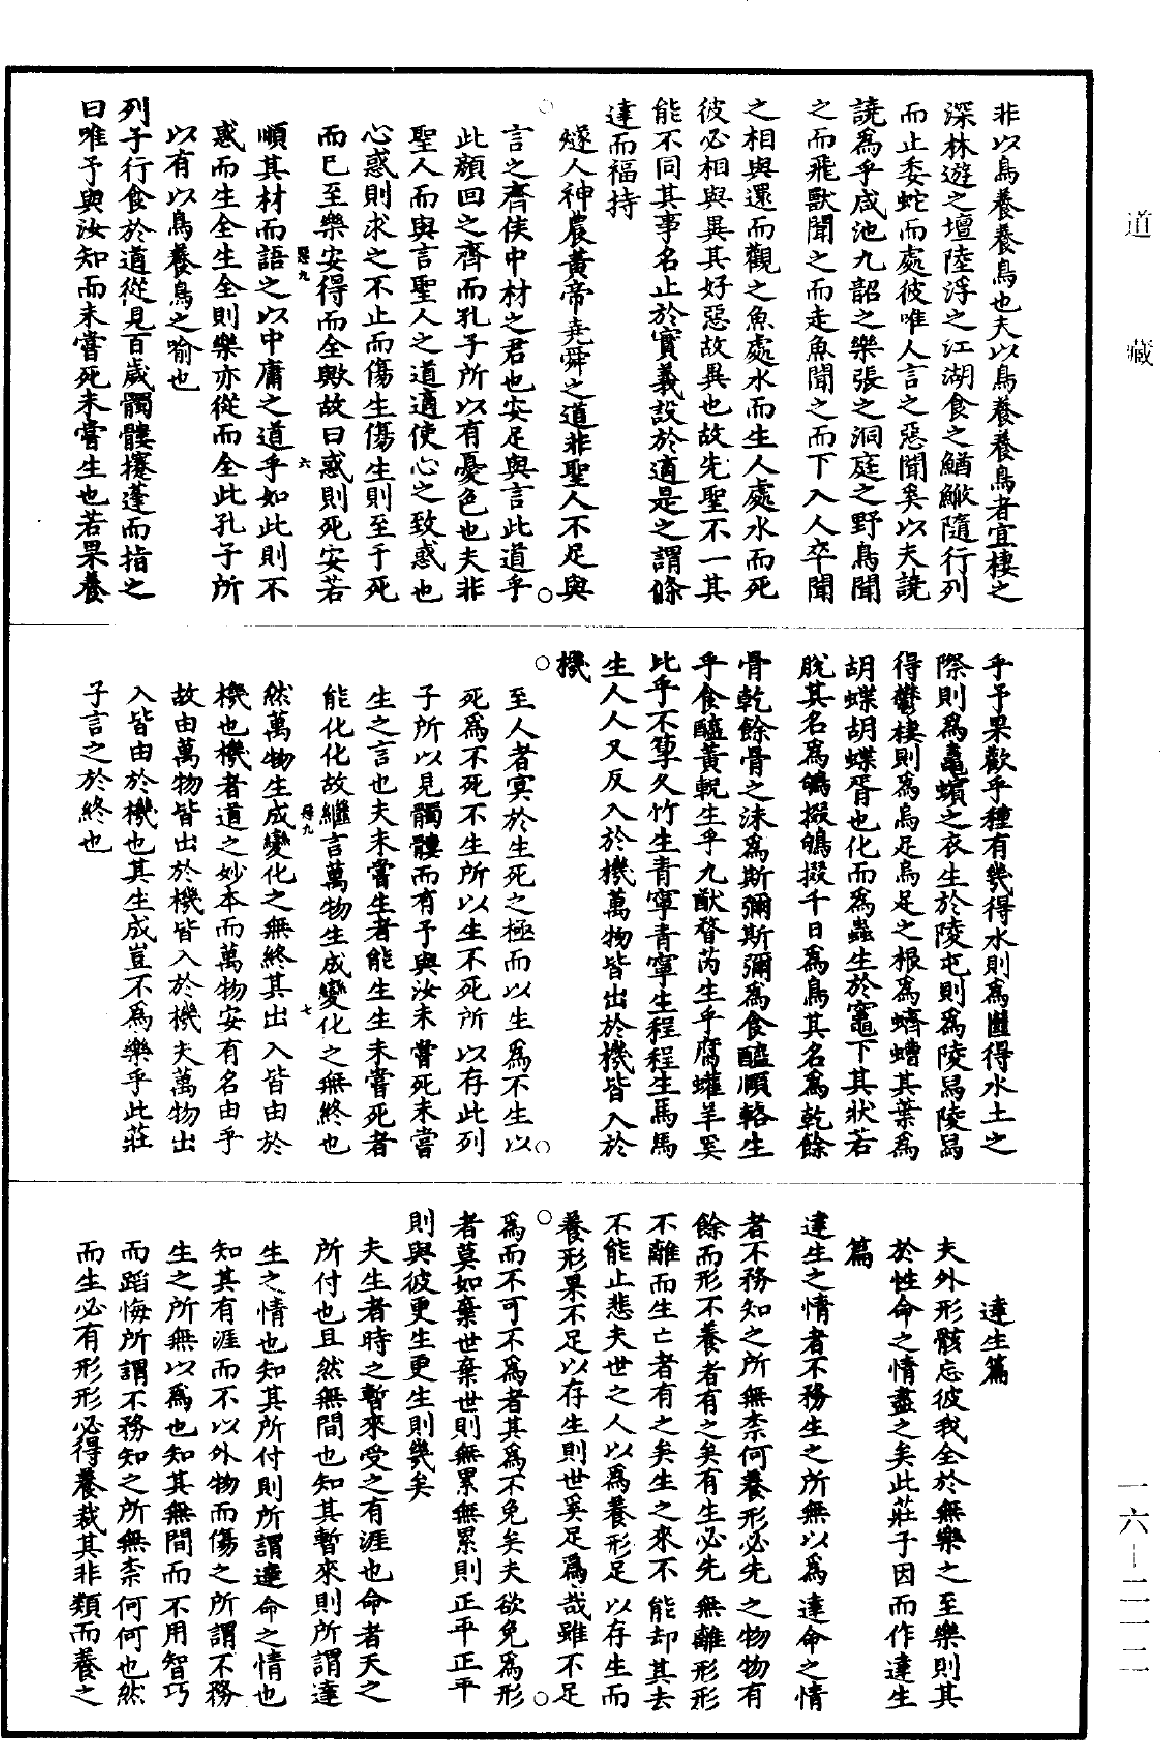 道藏
非以鳥養養鳥也夫以鳥養養鳥者宜棲之
深林遊之壇陸浮之江湖食之鰌鰷隨行列
而止委蛇而處彼唯人言之惡聞奚以夫譊
譊爲乎咸池九韶之樂張之洞庭之野鳥聞
之而飛獸聞之而走魚聞之而下入人卒聞
之相與還而觀之魚處水而生人處水而死
彼必相與異其好惡故異也故先聖不一其
能不同其事名止於實義設於適是之謂條
達而福持
○燧人神農黃帝堯舜之道非聖人不足與○
言之齊侯中材之君也安足與言此道乎
此顏回之齊而孔子所以有憂色也夫非
聖人而與言聖人之道適使心之致惑也
心惑則求之不止而傷生傷生則至于死
而已至樂安得而全歟故曰惑則死安若
九 六
順其材而語之以中庸之道乎如此則不
惑而生全生全則樂亦從而全此孔子所
以有以鳥養鳥之喻也
列子行食於道從見百歲髑髏攓蓬而指之
曰唯予與汝知而未嘗死未嘗生也若果養
乎予果歡乎種有幾得水則爲㡭得水土之
際則爲鼃蠙之衣生於陵屯則爲陵舄陵舄
得鬱棲則爲烏足烏足之根爲蠐螬其葉爲
胡蝶胡蝶胥也化而爲蟲生於竈下其狀若
脫其名爲鴝掇鴝掇千日爲鳥其名爲乾餘
骨乾餘骨之沫爲斯彌斯彌爲食醯頤輅生
乎食醯黃軦生乎九猷瞀芮生乎腐蠸羊奚
比乎不箰久竹生青寧青寧生程程生馬馬
生人人又反入於機萬物皆出於機皆入於
機
○至人者冥於生死之極而以生爲不生以○
死爲不死不生所以生不死所以存此列
子所以見髑髏而有予與汝未嘗死未嘗
生之言也夫未嘗生者能生生未嘗死者
能化化故繼言萬物生成變化之無終也
九 七
然萬物生成變化之無終其出入皆由於
機也機者道之妙本而萬物安有名由乎
故由萬物皆出於機皆入於機夫萬物出
入皆由於機也其生成豈不爲樂乎此莊
子言之於終也
達生篇
夫外形骸忘彼我全於無樂之至樂則其
於性命之情盡之矣此莊子因而作達生
篇
達生之情者不務生之所無以爲達命之情
者不務知之所無柰何養形必先之物物有
餘而形不養者有之矣有生必先無離形形
不離而生亡者有之矣生之來不能却其去
不能止悲夫世之人以爲養形足以存生而
養形果不足以存生則世奚足爲哉雖不足
○爲而不可不爲者其爲不免矣夫欲免爲形○
者莫如棄世棄世則無累無累則正平正平
則與彼更生更生則幾矣
夫生者時之暫來受之有涯也命者天之
所付也且然無間也知其暫來則所謂達
生之情也知其所付則所謂達命之情也
知其有涯而不以外物而傷之所謂不務
生之所無以爲也知其無間而不用智巧
而蹈悔所謂不務知之所無柰何何也然
而生必有形形必得養裁其非類而養之
一六―二一二